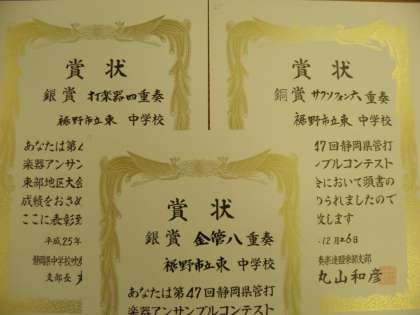 賞状
銀賞 打楽器四重奏
裾野市立東 中学校
あなたは第4
楽器アンサン
東部地区大会
成績をおさめ
ここに表彰
平成25年
静岡県中学校吹
支部長
賞状
銅賞 サクソフォン六重奏
裾野市立東 中学校
47回静岡県管打
ンブルコンテスト
において頭書の
られましたので
致します
12月26日
丸山和彦
賞状
銀賞 金管八重奏
裾野市立東 中学校
あなたは第47回静岡県管打
楽器アンサンブルコンテスト